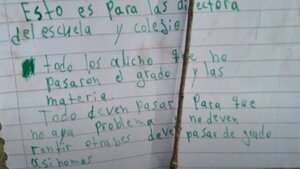 Esto es para las directora
del escuela y colegio
todo los alicho que no
pasaron el grado y las
materia
Todo deven pasar Para que
no aya problema no deven
rentir otrabes deven pasar de grado
asinomas